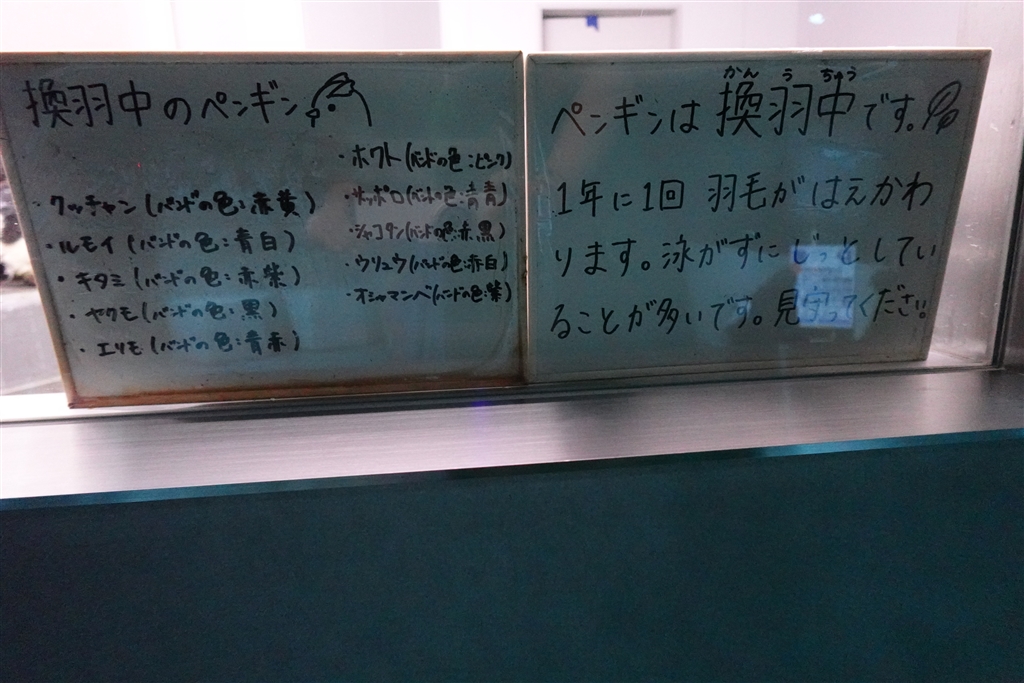 換羽中のペンギン
・クッチャン(バンドの色:赤黄)
・ルモイ(バンドの色:青白)
・キタミ(バンドの色:赤紫)
・ヤクモ(バンドの色:黒)
・エリモ(バンドの色:青赤)
・ホクト(バンドの色:ピンク)
・サッポロ(バンドの色:青青)
・シャコタン(バンドの色:赤黒)
・ウリュウ(バンドの色:赤白)
・オシャマンベ(バンドの色:紫)
かん う ちゅう
ペンギンは換羽中です。
1年に1回 羽毛がはえかわ
ります。泳がずにじっとしてい
ることが多いです。見守ってください。